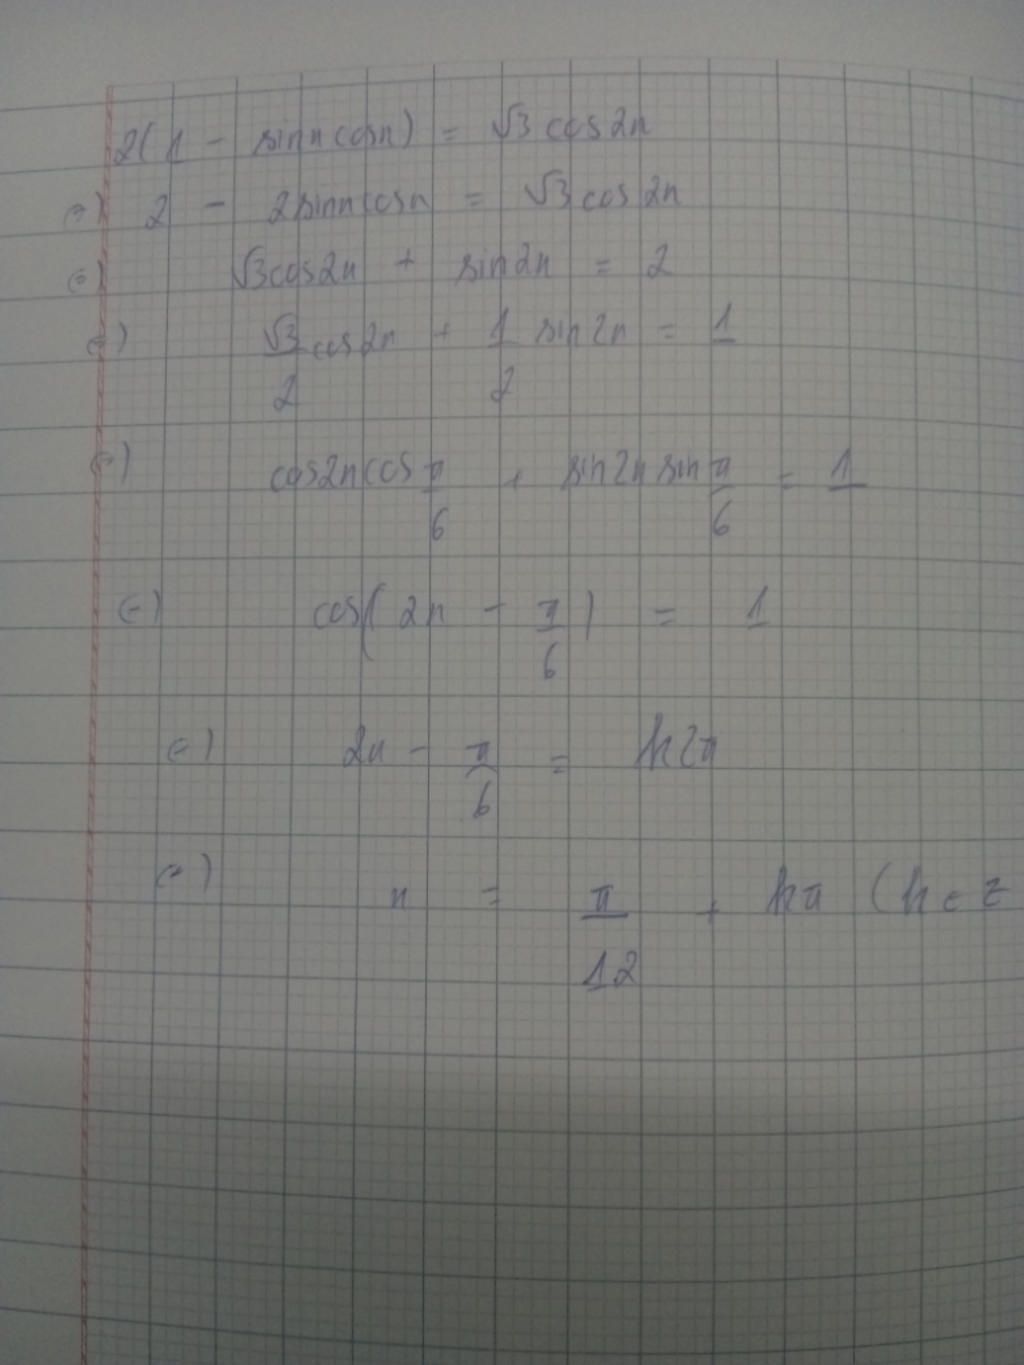 2(1 - sinxcosx) = √3 cos2x
⇔) 2 - 2sinxcosx = √3 cos2x
⇔) √3cos2x + sin2x = 2
⇔) √3/2 cos2x + 1/2 sin2x = 1
⇔) cos2xcos π/6 + sin2x sin π/6 = 1
⇔) cos(2x - π/6) = 1
⇔) 2x - π/6 = k2π
⇔) x = π/12 + kπ (k ∈ Z